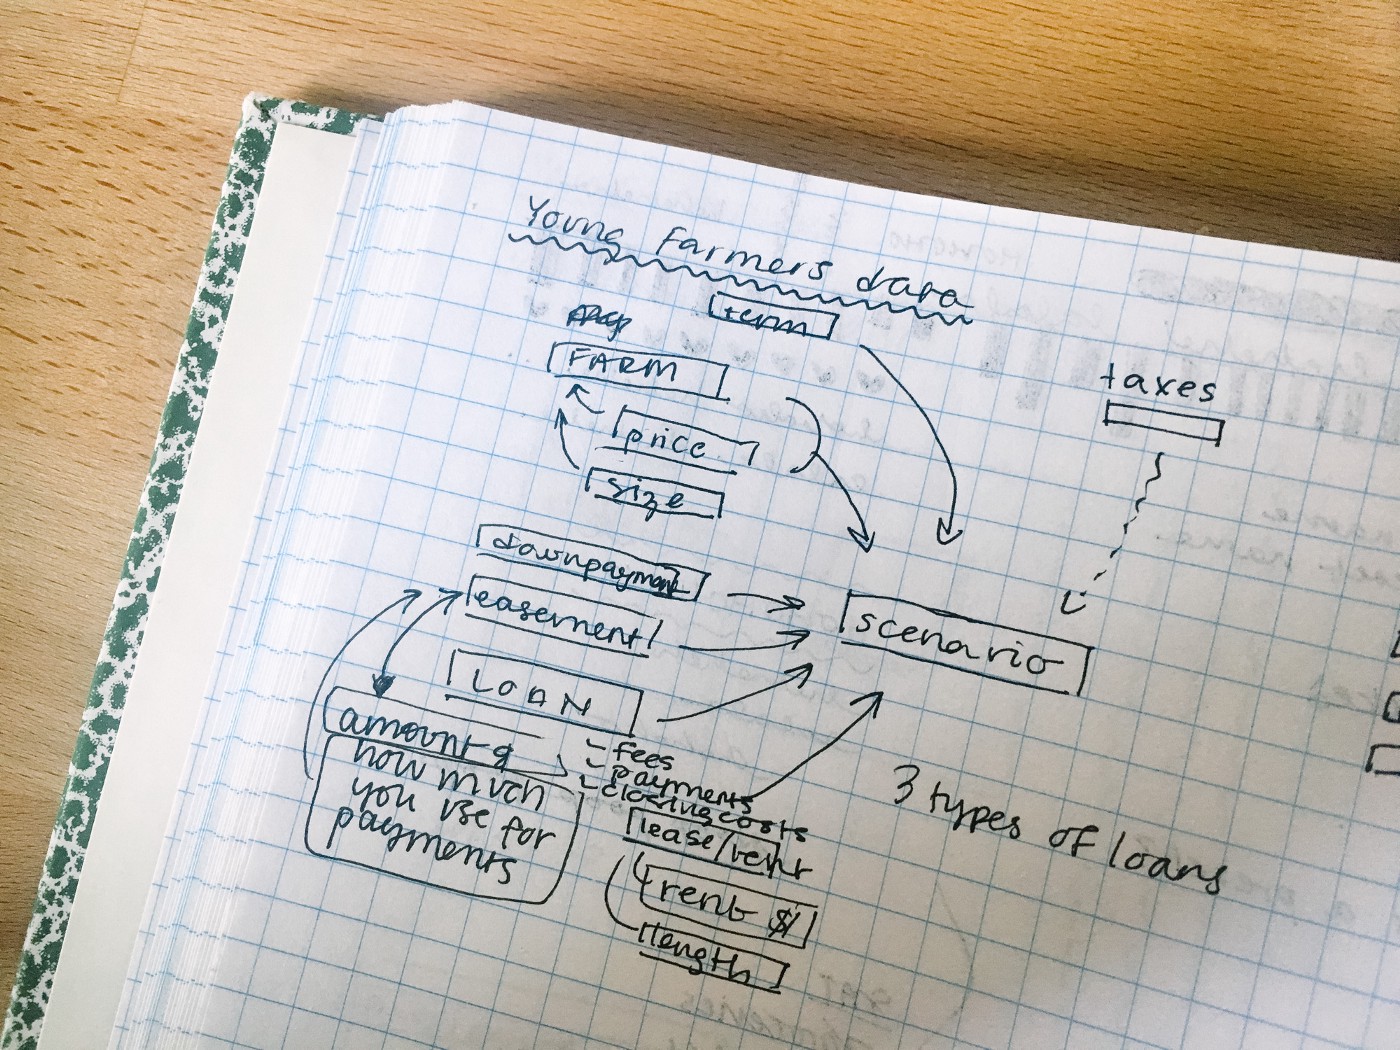 Young Farmers data
term
FARM
price
size
taxes
downpayment
easement
scenario
LOAN
amount &
how much
you use for
payments
- fees
- payments
- closing costs
lease/rent
rent $
length
3 types of loans